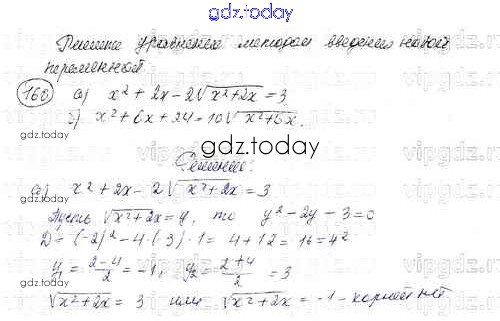 gdz.today
Решить уравнения методом введения новой
переменной.
gdz.today
160 а) x² + 2x - 2√(x²+2x) = 3
gdz.today
г) x² + 6x + 24 = 10√(x²+6x).
gdz.today
Решение:
а) x² + 2x - 2√(x²+2x) = 3
gdz.today
Пусть √(x²+2x) = y, то y² - 2y - 3 = 0
D = (-2)² - 4·(-3)·1 = 4 + 12 = 16 = 4²
y₁ = (2-4)/2 = -1, y₂ = (2+4)/2 = 3
gdz.today
√(x²+2x) = 3 или √(x²+2x) = -1 - корней нет